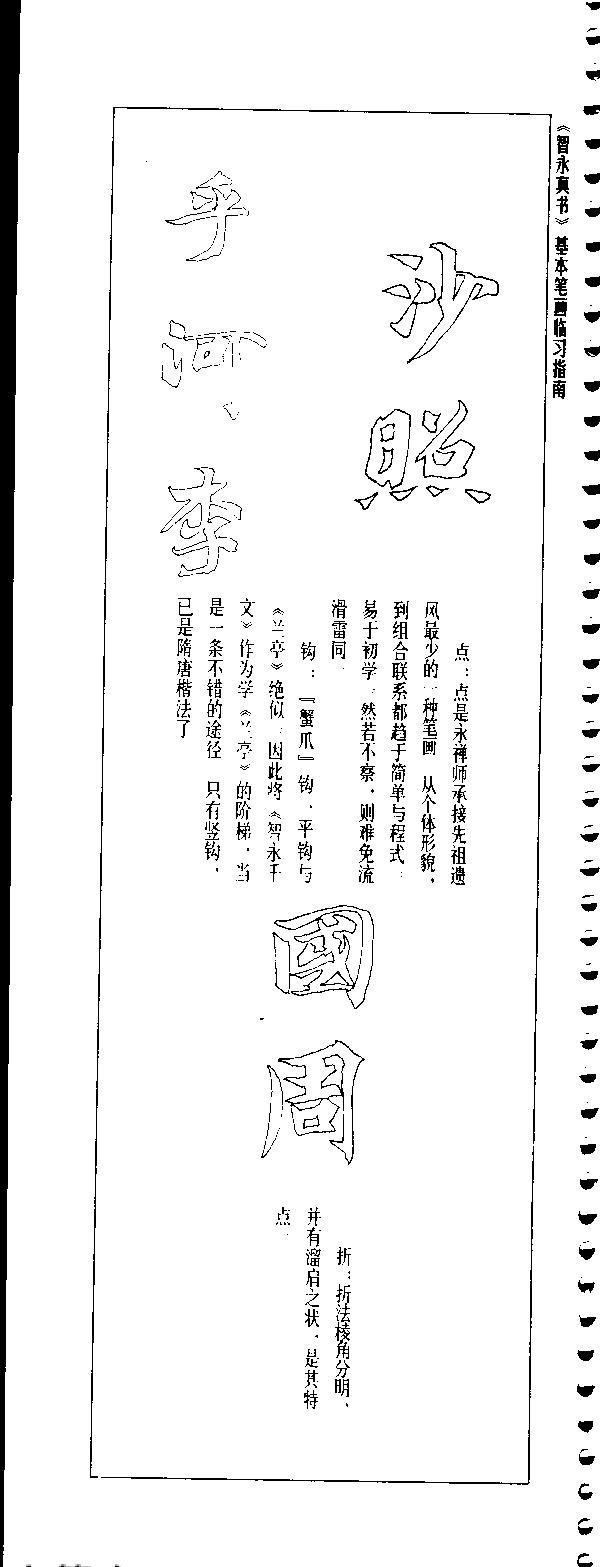 《智永真书》基本笔画临习指南
沙
照
点：点是永禅师承接先祖遗
风最少的一种笔画。从个体形貌，
到组合联系都趋于简单与程式，
易于初学。然若不察，则难免流
滑雷同。
乎
河
李
钩：『蟹爪』钩、平钩与
《兰亭》绝似，因此将《智永千
文》作为学《兰亭》的阶梯，当
是一条不错的途径。只有竖钩，
已是隋唐楷法了
國
周
折：折法棱角分明，
并有溜肩之状，是其特
点。